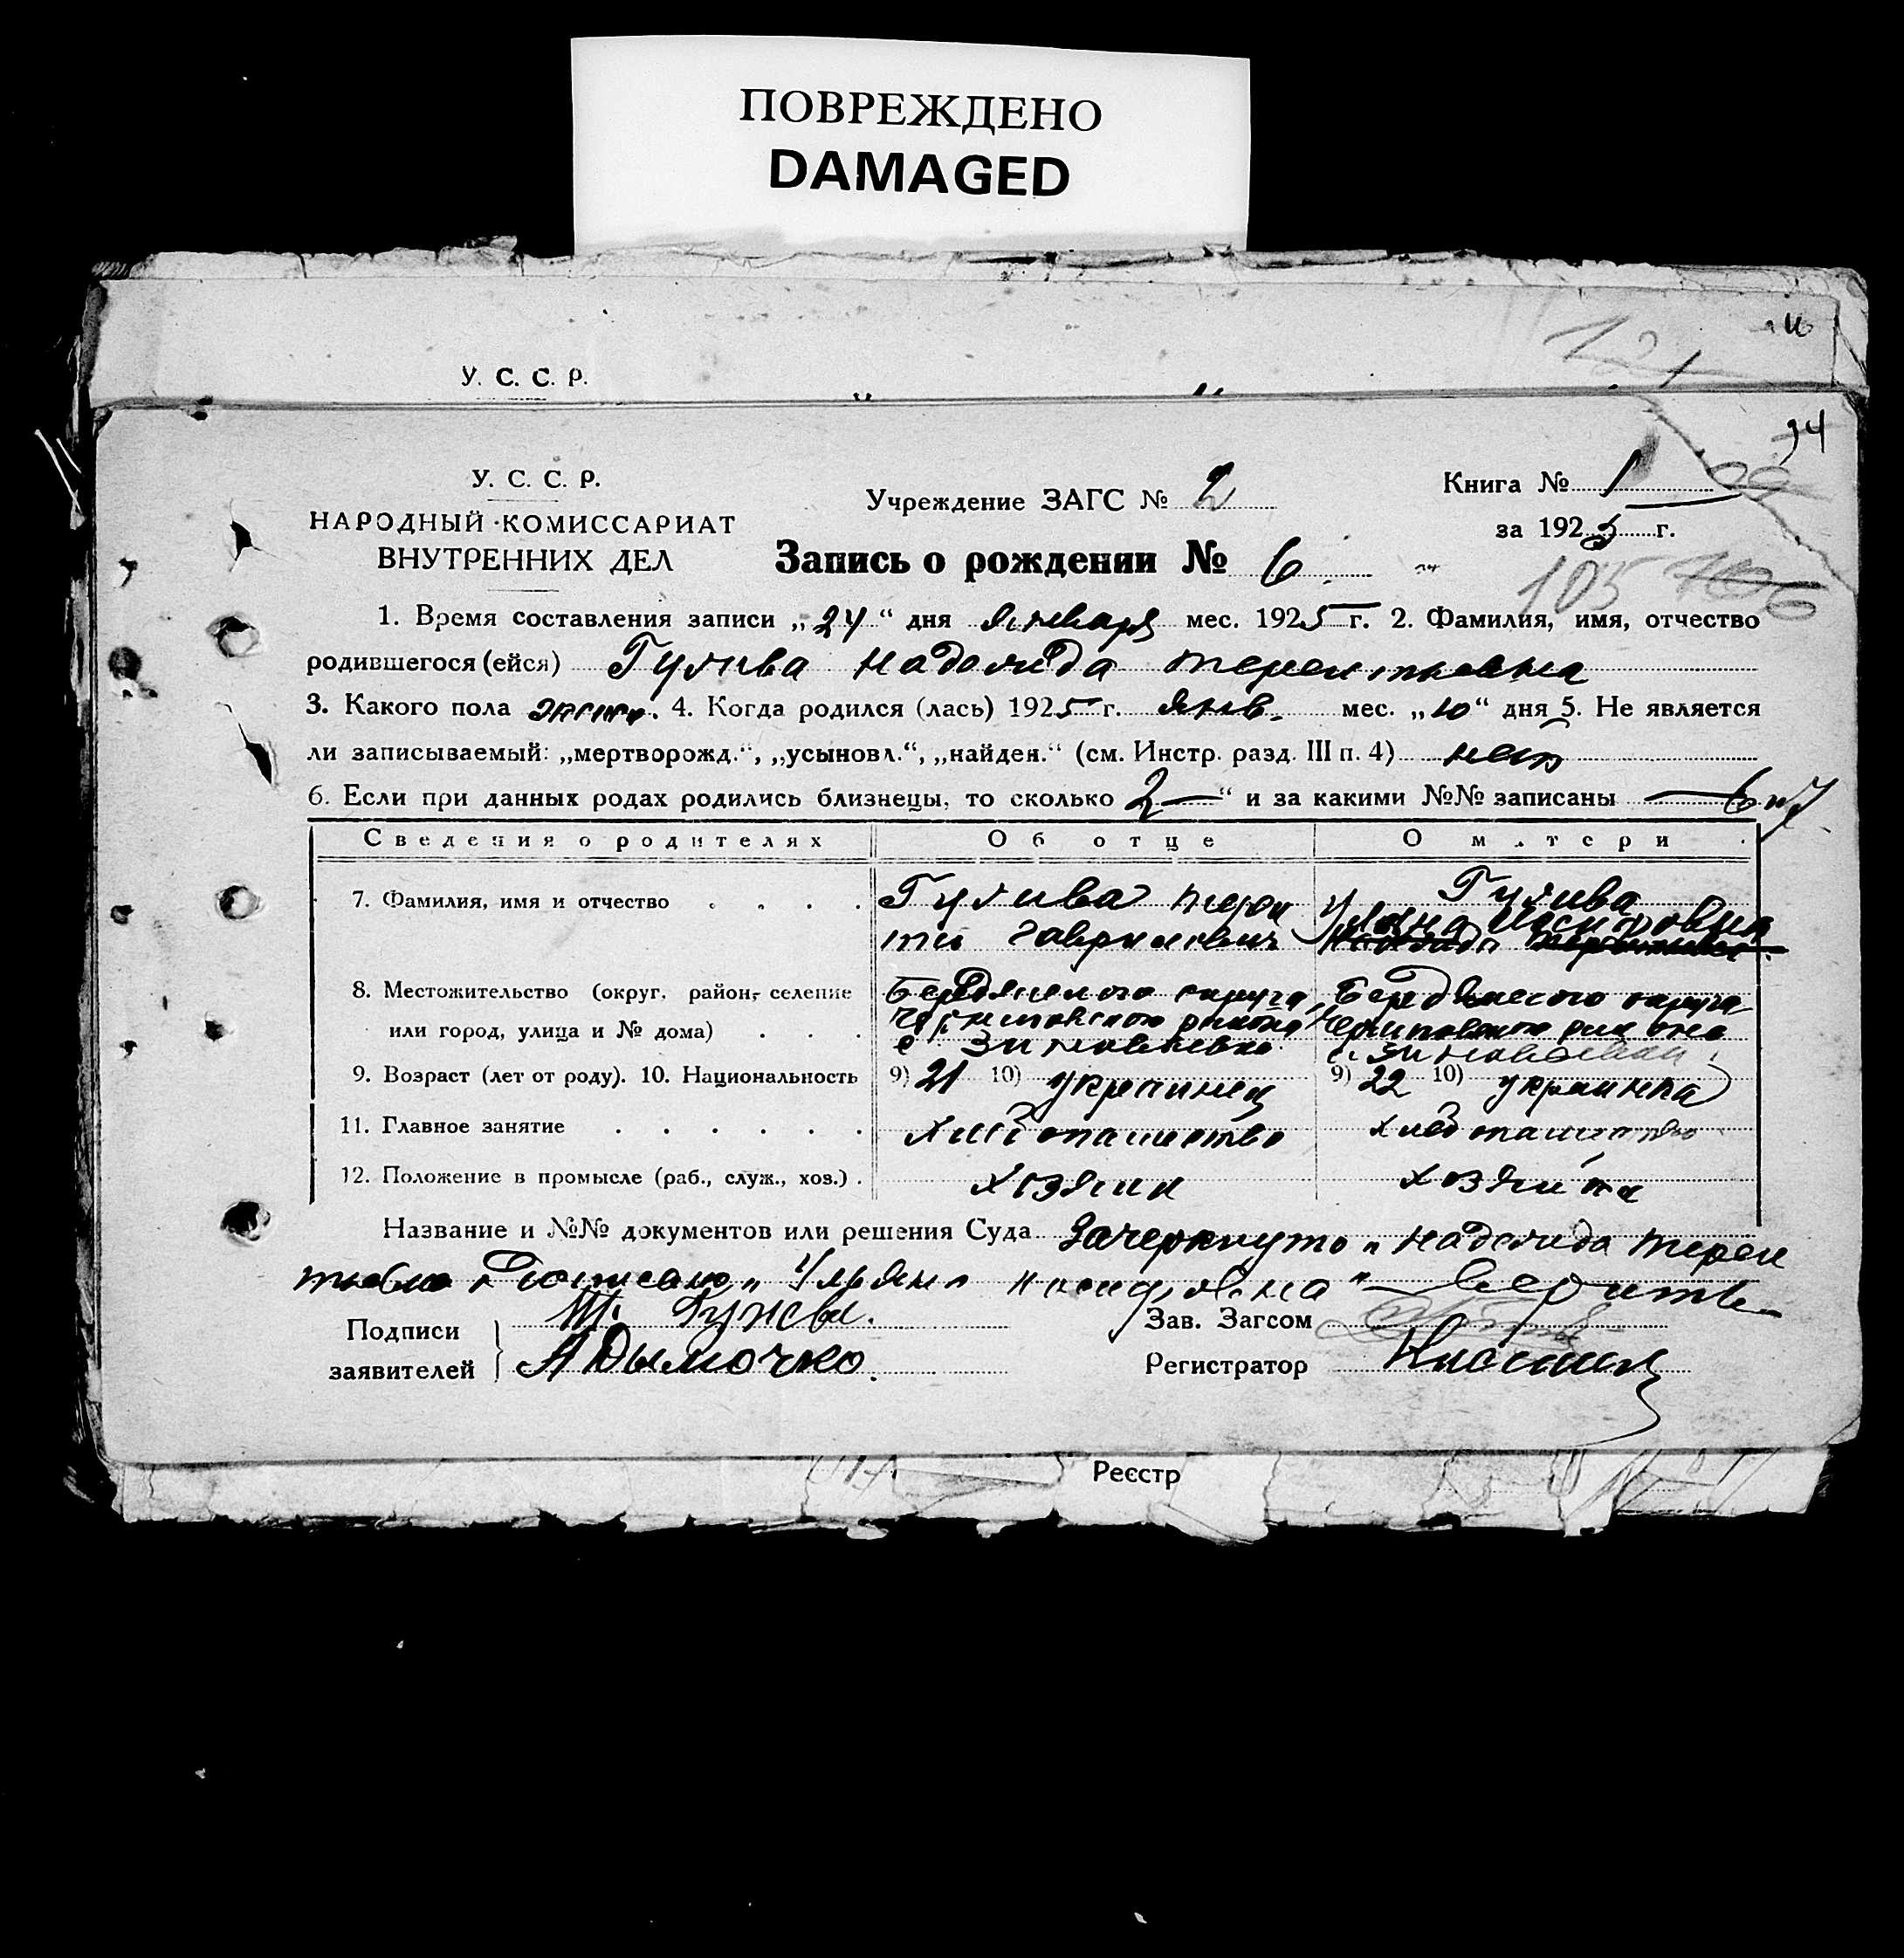 ПОВРЕЖДЕНО
DAMAGED
У. С. С. Р.
121
94
У. С. С. Р.
НАРОДНЫЙ КОМИССАРИАТ
ВНУТРЕННИХ ДЕЛ
Учреждение ЗАГС № 2
Книга № 1
за 1925 г.
Запись о рождении № 6
105 106
1. Время составления записи „24“ дня января мес. 1925 г. 2. Фамилия, имя, отчество
родившегося (ейся) Гулива Надежда Терентьевна
3. Какого пола женск. 4. Когда родился (лась) 1925 г. янв. мес. „10“ дня 5. Не является
ли записываемый: „мертворожд.“, „усыновл.“, „найден.“ (см. Инстр. разд. III п. 4) нет
6. Если при данных родах родились близнецы, то сколько 2 “ и за какими №№ записаны 6 и 7
Сведения о родителях Об отце О матери
7. Фамилия, имя и отчество Гулива Терен Гулива
тий Гаврилович Ульяна
Надежда
8. Местожительство (округ, район, селение Бердянского округа, Бердянского округа
или город, улица и № дома) района района
с. Зиновьевка с.
9. Возраст (лет от роду). 10. Национальность 9) 21 10) украинец 9) 22 10) украинка
11. Главное занятие хлебопашество хлебопашество
12. Положение в промысле (раб., служ., хоз.) хозяин хозяйка
Название и №№ документов или решения Суда Зачеркнуто „Надежда Терен
тьевна „ Ульяна “ верить
Подписи
заявителей
Т. Гулива.
А Дымочко.
Зав. Загсом
Регистратор
Реєстр